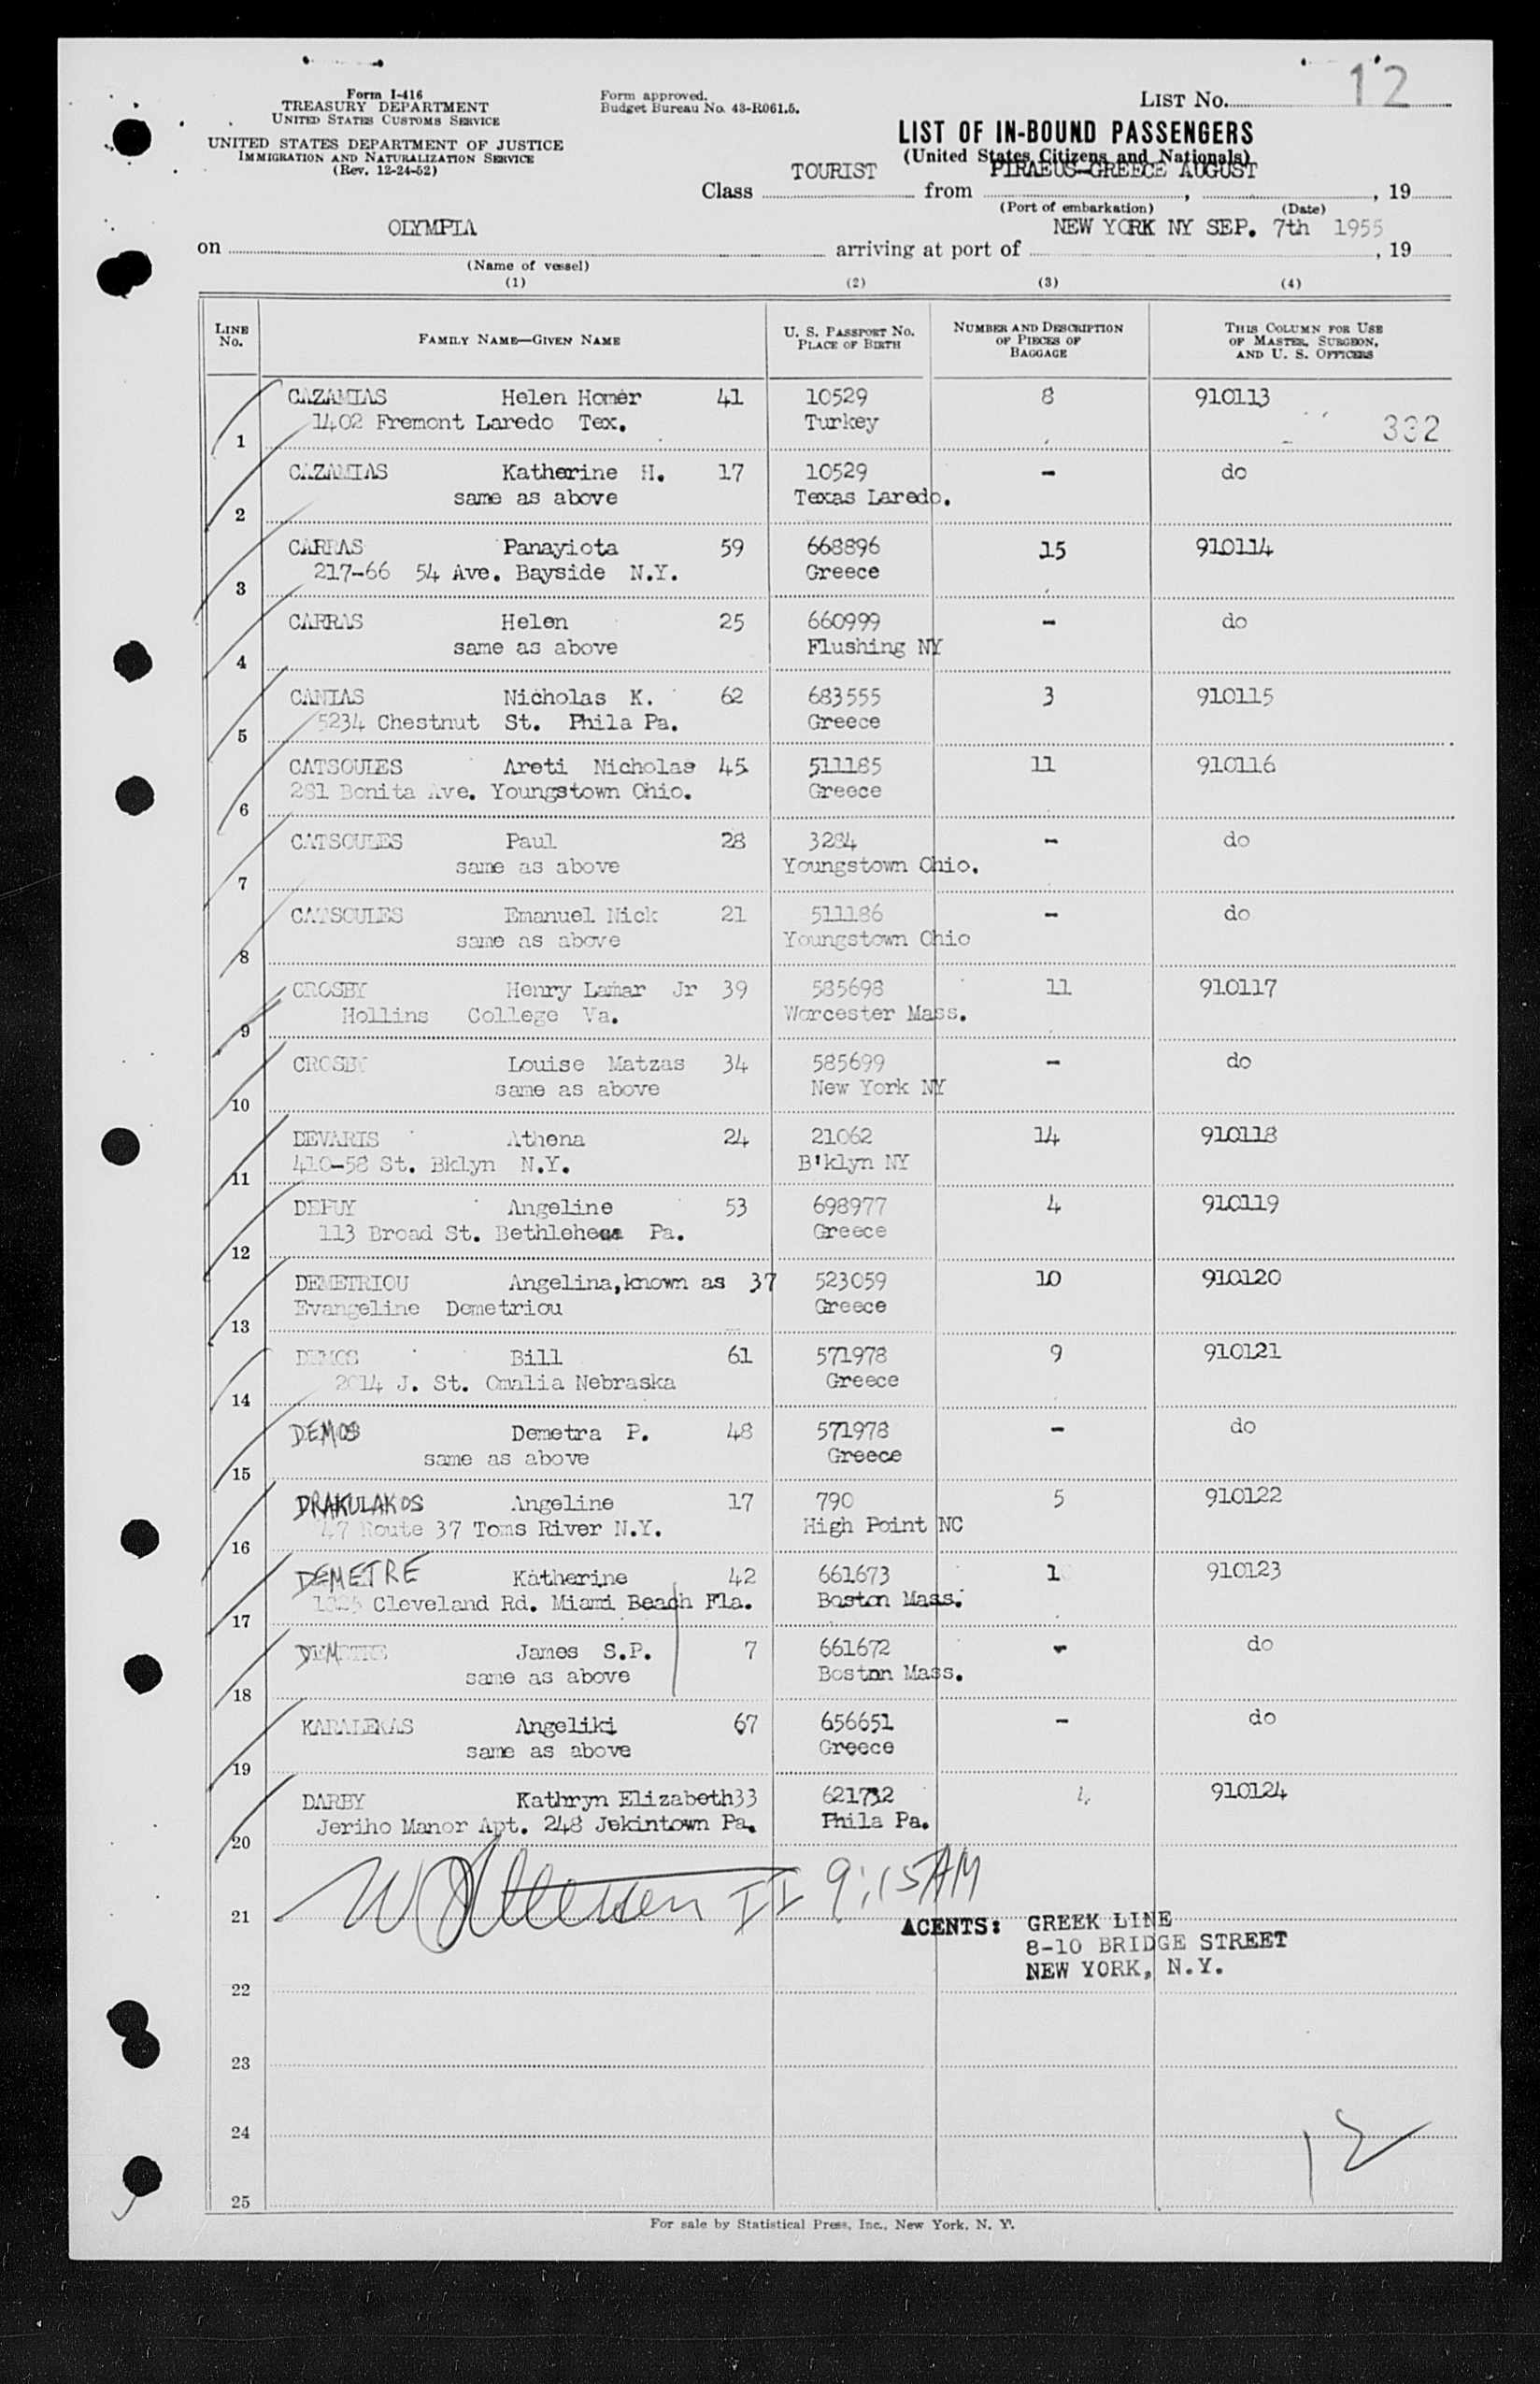 LIST No. 12
Form I-416
TREASURY DEPARTMENT
UNITED STATES CUSTOMS SERVICE
Form approved.
Budget Bureau No. 43-R061.5.
UNITED STATES DEPARTMENT OF JUSTICE
IMMIGRATION AND NATURALIZATION SERVICE
(Rev. 12-24-52)
LIST OF IN-BOUND PASSENGERS
(United States Citizens and Nationals)
Class TOURIST from PIRAEUS-GREECE AUGUST, 19
(Port of embarkation) (Date)
on OLYMPIA arriving at port of NEW YORK NY SEP. 7th 1955, 19
(Name of vessel)
(1) (2) (3) (4)
LINE No. FAMILY NAME—GIVEN NAME U. S. PASSPORT No. PLACE OF BIRTH NUMBER AND DESCRIPTION OF PIECES OF BAGGAGE THIS COLUMN FOR USE OF MASTER, SURGEON, AND U. S. OFFICERS
CAZAMIAS Helen Homer 41 10529 8 910113
1 1402 Fremont Laredo Tex. Turkey 332
CAZAMIAS Katherine H. 17 10529 - do
2 same as above Texas Laredo.
CARRAS Panayiota 59 668896 15 910114
3 217-66 54 Ave. Bayside N.Y. Greece
CARRAS Helen 25 660999 - do
4 same as above Flushing NY
CANIAS Nicholas K. 62 683555 3 910115
5 5234 Chestnut St. Phila Pa. Greece
CATSOULES Areti Nicholas 45 511185 11 910116
6 281 Bonita Ave. Youngstown Ohio. Greece
CATSOULES Paul 28 3284 - do
7 same as above Youngstown Ohio.
CATSOULES Emanuel Nick 21 511186 - do
8 same as above Youngstown Ohio
CROSBY Henry Lamar Jr 39 585698 11 910117
9 Hollins College Va. Worcester Mass.
CROSBY Louise Matzas 34 585699 - do
10 same as above New York NY
DEVARIS Athena 24 21062 14 910118
11 410-58 St. Bklyn N.Y. B'klyn NY
DEPUY Angeline 53 698977 4 910119
12 113 Broad St. Bethlehem Pa. Greece
DEMETRIOU Angelina,known as 37 523059 10 910120
13 Evangeline Demetriou Greece
DEMOS Bill 61 571978 9 910121
14 2014 J. St. Omalia Nebraska Greece
DEMOS Demetra P. 48 571978 - do
15 same as above Greece
DRAKULAKOS Angeline 17 790 5 910122
16 47 Route 37 Toms River N.Y. High Point NC
DEMETRE Katherine 42 661673 1 910123
17 Cleveland Rd. Miami Beach Fla. Boston Mass.
DEMETRE James S.P. 7 661672 - do
18 same as above Boston Mass.
KARALEKAS Angeliki 67 656651 - do
19 same as above Greece
DARBY Kathryn Elizabeth 33 621732 4 910124
20 Jeriho Manor Apt. 248 Jekintown Pa. Phila Pa.
II 9:15 AM
21 AGENTS: GREEK LINE
8-10 BRIDGE STREET
NEW YORK, N.Y.
22
23
24
12
25
For sale by Statistical Press, Inc., New York, N. Y.